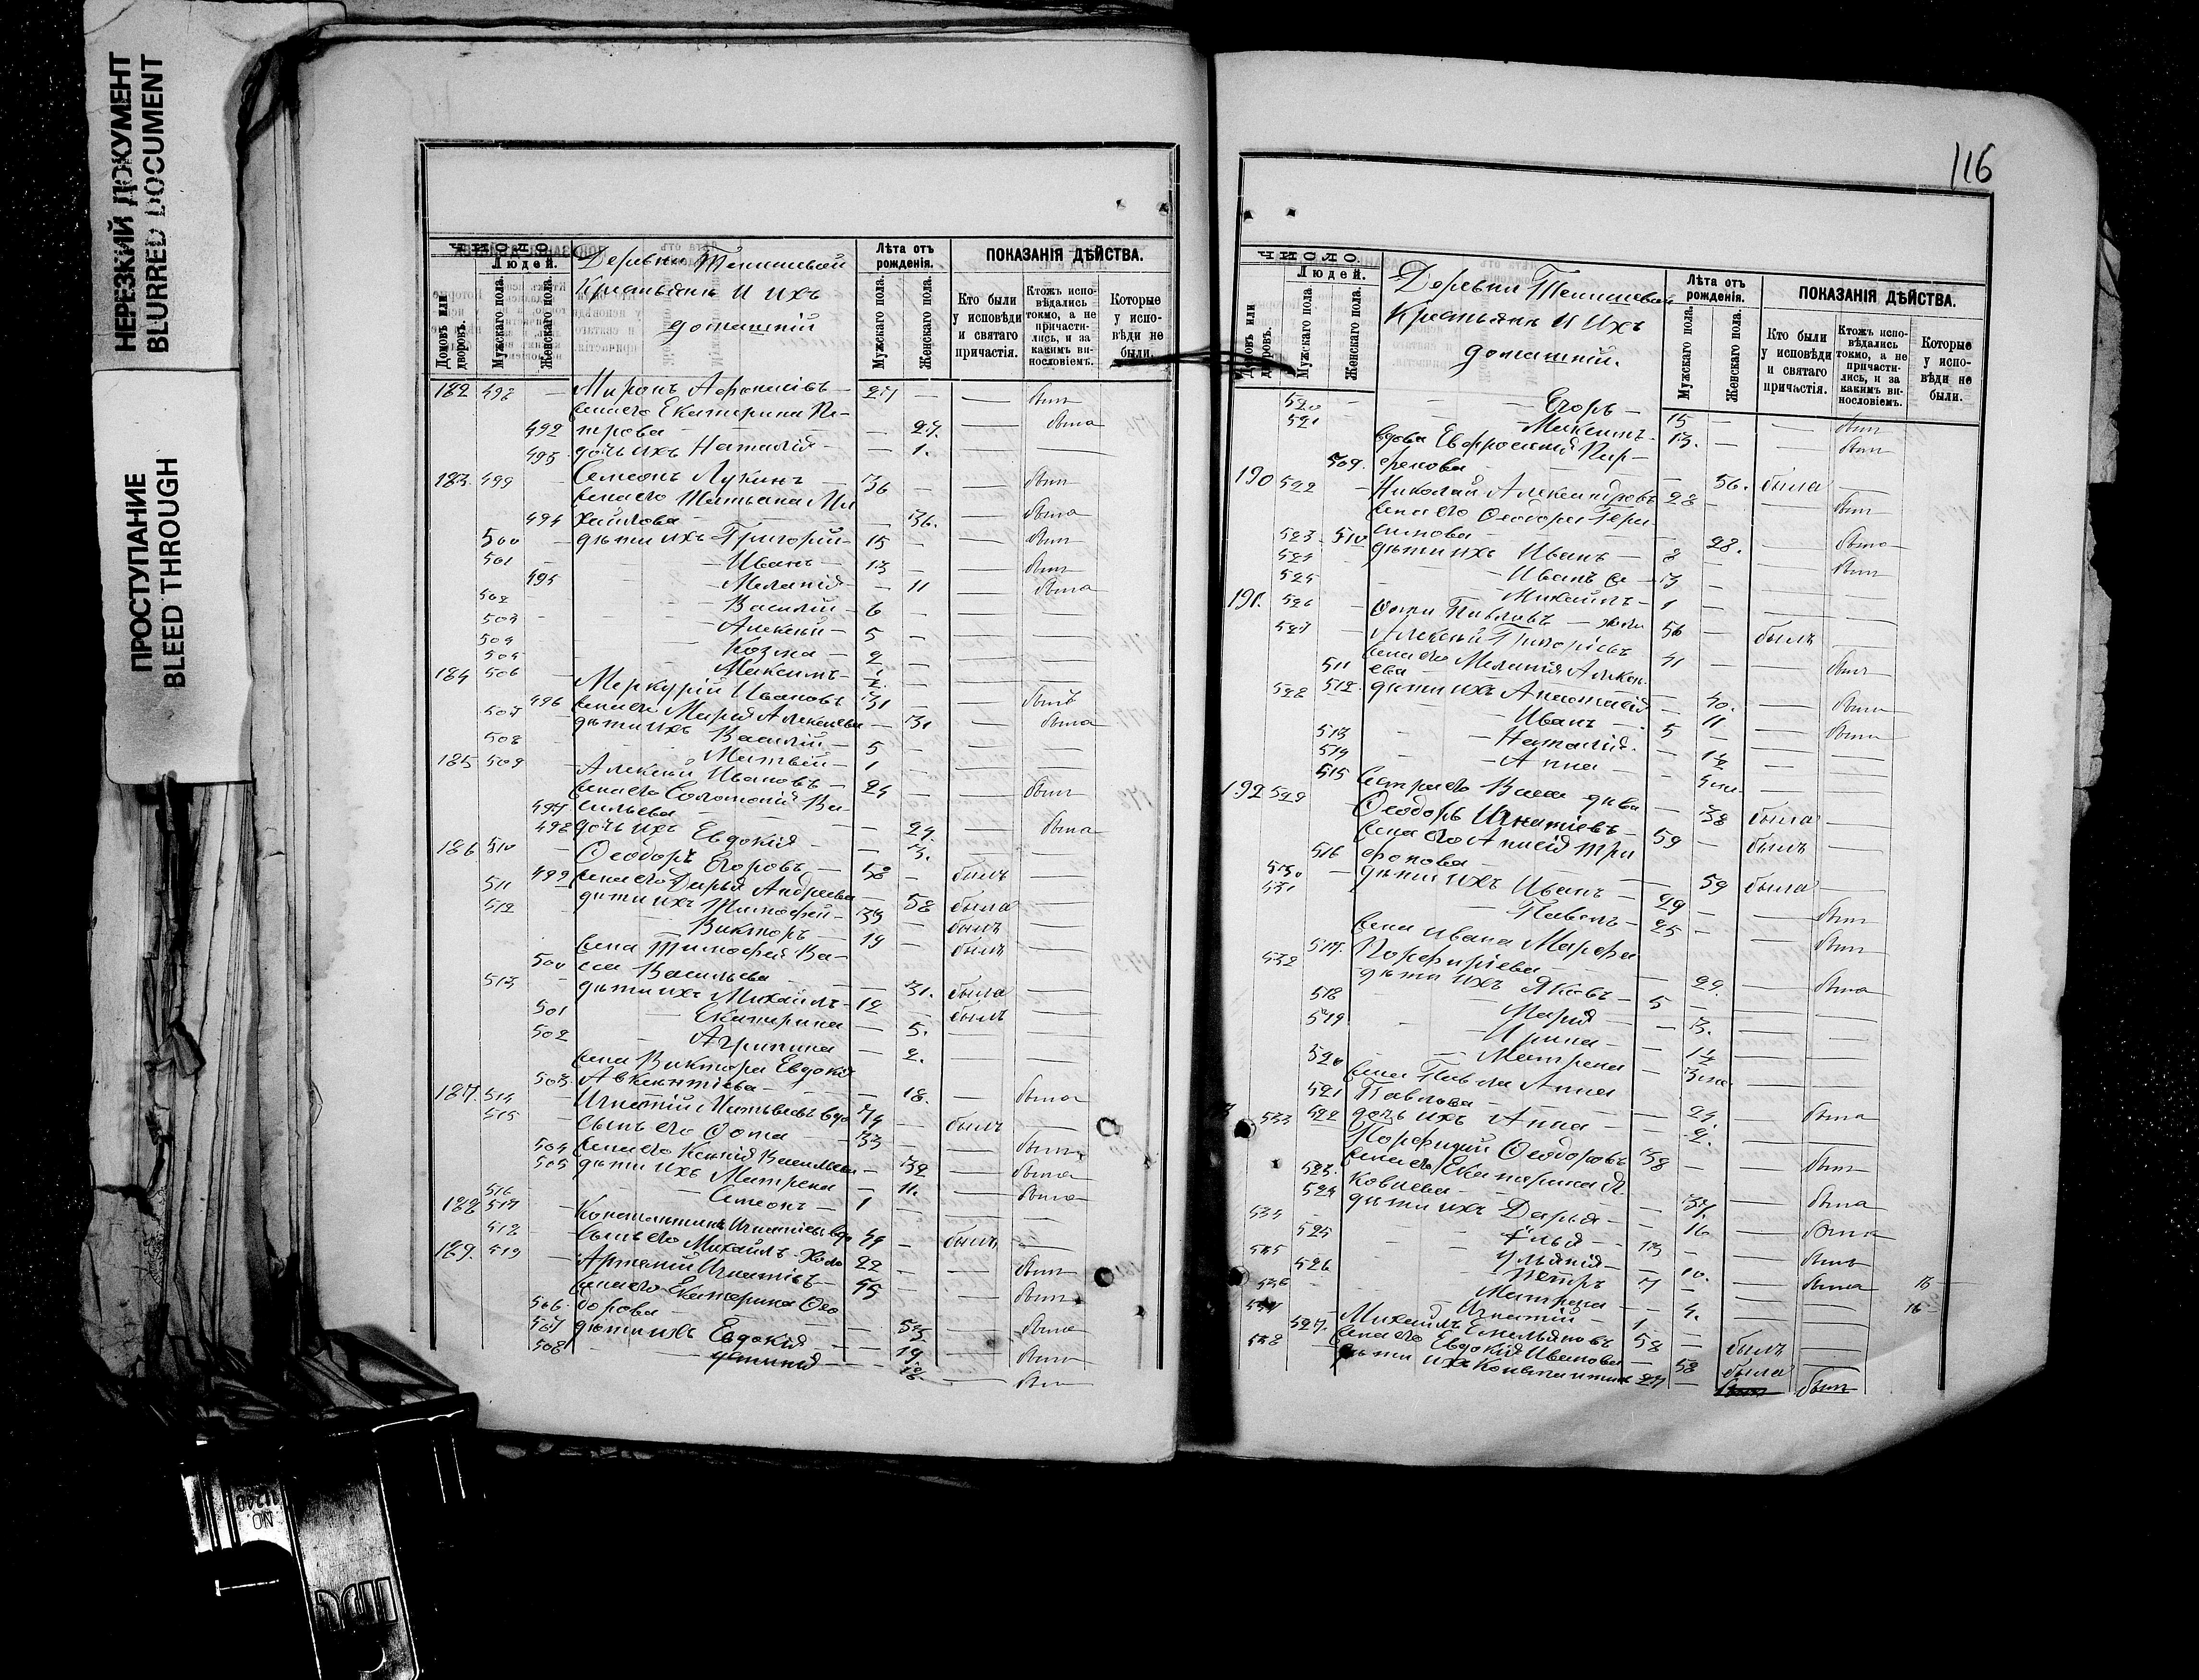 НЕРЕЗКИЙ ДОКУМЕНТ
BLURRED DOCUMENT
ПРОСТУПАНИЕ
BLEED THROUGH
ЧИСЛО
Людей.
Домовъ или дворовъ.
Мужскаго пола.
Женскаго пола.
Деревни
Крестьянъ и ихъ
домашній
Лѣта отъ рожденія.
Мужскаго пола.
Женскаго пола.
ПОКАЗАНІЯ ДѢЙСТВА.
Кто были у исповѣди и святаго причастія.
Ктожъ исповѣдались токмо, а не причастились, и за какимъ винословіемъ.
Которые у исповѣди не были.
182 498 — Миронъ — 27 — — былъ
жена его Екатерина Пе-
492 трова — — 27. — была
493 дочь ихъ Наталія — — 1. —
183. 499 Симеонъ Лукинъ — 36 — — былъ
жена его Татьяна Ми
494 хайлова — — 36. — была
500 — дѣти ихъ Григорій — 15 — — былъ
501 — Иванъ — 13 — — былъ
495 — Меланія — 11 — была
502 — Василій — 6 — —
503 — Алексѣй — 5 — —
504 — Козма — 2 — —
505 — Максимъ —
184 506 Меркурій Ивановъ 31 — — былъ
496 жена его Марія Алексѣева — 31 — была
507 дѣти ихъ Василій — 5 — —
508 — Матвѣй — 1 — —
185 509 — Алексѣй Ивановъ — 24 — — былъ
жена его Соломонія Ва-
497 сильева — — 24. — была
498 дочь ихъ Евдокія — — 3. —
186 510 — Ѳеодоръ Егоровъ — 58 — былъ —
499 жена его Дарья Андреева — 58 была —
511 дѣти ихъ Тимофей — 33 — былъ —
512 — Викторъ — 19 — былъ —
жена Тимофея Ва-
500 сса Васильева — — 31. была —
513 — дѣти ихъ Михаилъ — 12 — былъ —
501 — Екатерина — — 5. — —
502 — Агрипина — — 2. — —
жена Виктора Евдокія
503. Авксентіева — — 18. — была
187. 514 — Игнатій Матвѣевъ вдо 74 — былъ —
515 — сынъ его Ѳома — 33 — — былъ
504 жена его Ксенія Васильева — 32 — была
505 дѣти ихъ Матрена — 11. — была
516 — Симеонъ — 1 — —
188 517 — Константинъ Игнатіевъ вдо — былъ —
518 сынъ его Михаилъ — холо 22 — — былъ
189. 519 — Артемій Игнатіевъ — — — былъ
жена его Екатерина Ѳео
506. дорова — — — была
507 дѣти ихъ Евдокія — — 19. —
508 —
116
ЧИСЛО.
Людей.
Домовъ или дворовъ.
Мужскаго пола.
Женскаго пола.
Деревни
Крестьянъ и ихъ
домашній.
Лѣта отъ рожденія.
Мужскаго пола.
Женскаго пола.
ПОКАЗАНІЯ ДѢЙСТВА.
Кто были у исповѣди и святаго причастія.
Ктожъ исповѣдались токмо, а не причастились, и за какимъ винословіемъ.
Которые у исповѣди не были.
520 — — Егоръ — 15 — — былъ
521 — Максимъ — 13. — — былъ
вдова Евфросинія Пар-
509. фенова — — 56. была —
190 522 — Николай Александровъ 28 — — былъ
жена его Ѳеодора Гера-
510 симова — — 28. — была
523 дѣти ихъ Иванъ — 8 — — былъ
524 — Иванъ 2 — 3 — —
525 — Михаилъ — 1 — —
191. 526 — Ѳома Павловъ — холо 56 — былъ —
527 — Алексѣй Григорьевъ 41 — — былъ
жена его Меланія Алексѣ-
511 ева — — 40. — была
512. дѣти ихъ Анастасія — 11 — была
528 — Иванъ — 5 — —
513 — Наталія —
514 — Анна —
515 сестра его Васса дѣва — 38 была —
192 529 Ѳеодоръ Игнатіевъ — 59 — былъ —
жена его Анисія Три
516 фонова — — 59 была —
530 — дѣти ихъ Иванъ — 29 — — былъ
531 — Павелъ — 25 — — былъ
жена Ивана Марфа
517. Порфиріева — — 29. — была
532 дѣти ихъ Яковъ — 5 — —
518 — Марія — — 3. —
519 — Ирина —
520 — Матрена —
жена Павла Анна
521 Павлова — — 24. — была
522 дочь ихъ Анна — — 2. —
533 Порфирій Ѳеодоровъ 38 — — былъ
жена его Екатерина Я-
523. ковлева — — 37. — была
524 дѣти ихъ Дарья — — 16 — была
534 — Илья — 13 — — былъ
525 — Ульянія — — 10. — была
535 — Петръ 7 — —
526 — Матрена — — 4. —
536 — Игнатій — 1 — —
537 — Михаилъ Емельяновъ 58 — былъ —
527. жена его Евдокія Иванова — 58 была —
538 — дѣти ихъ Константинъ 27 — былъ
16
16